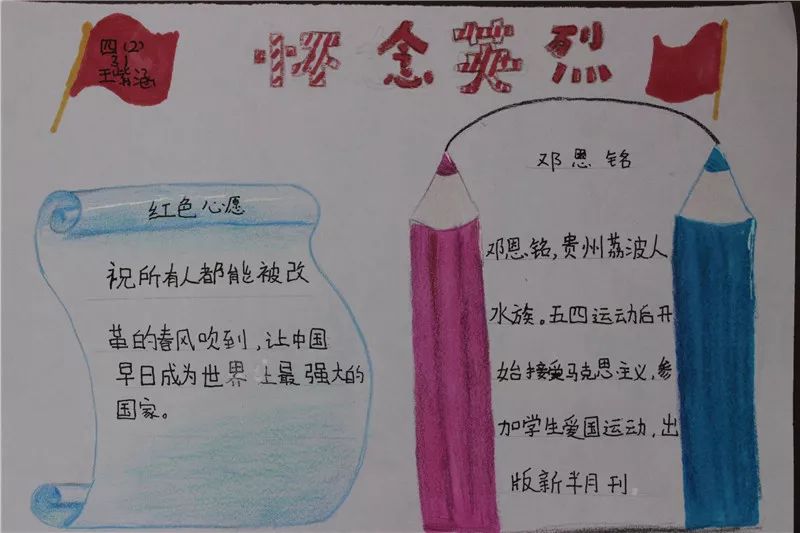 四(2)
31
王紫涵
怀念英烈
红色心愿
祝所有人都能被改
革的春风吹到,让中国
早日成为世界上最强大的
国家。
邓恩铭
邓恩铭,贵州荔波人
水族。五四运动后开
始接受马克思主义,参
加学生爱国运动,出
版新半月刊